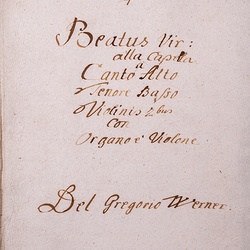 Beatus Vir:
alla Capella
a
Canto Alto
Tenore Basso
Violinis 2bus
Con
Organo è Violone.
Del Gregorio Werner.